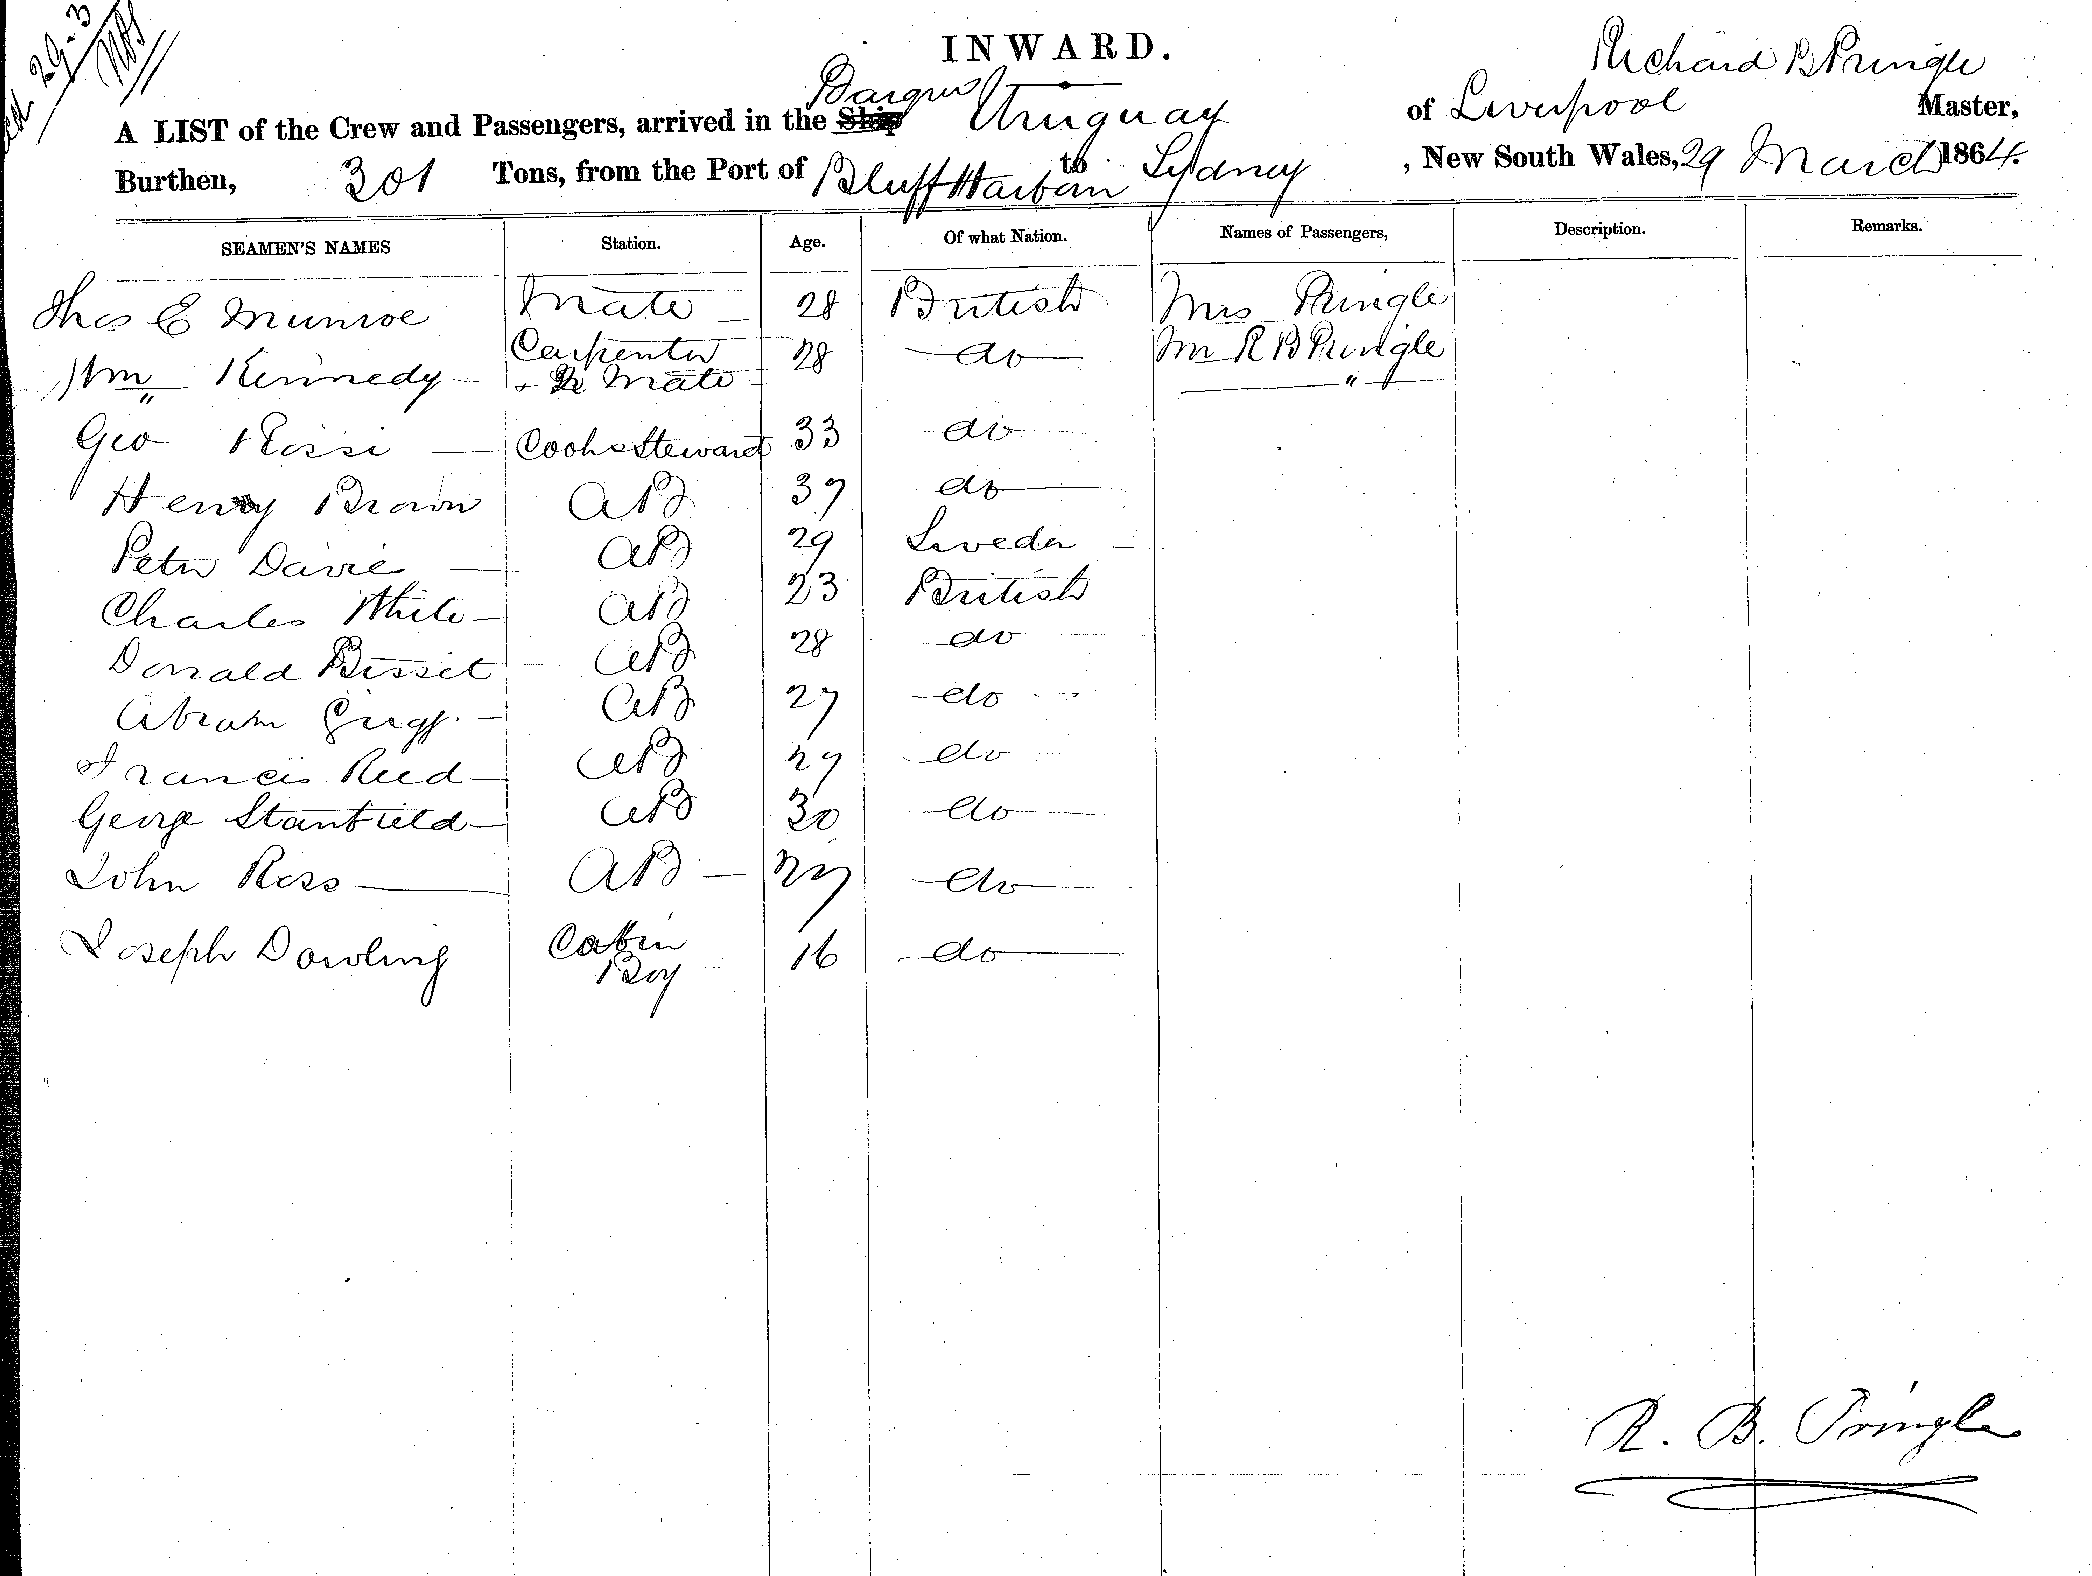 29-3
INWARD.
Richard B Pringle
A LIST of the Crew and Passengers, arrived in the Ship Barque Uruguay of Liverpool Master,
Burthen, 301 Tons, from the Port of Bluff Harbour to Sydney, New South Wales, 29 March 1864.
SEAMEN'S NAMES Station. Age. Of what Nation. Names of Passengers, Description. Remarks.
Thos E Munroe Mate 28 British Mrs Pringle
Wm Kennedy Carpenter & 2 Mate 28 do Mr R B Pringle
"
Geo Rossi Cook & Steward 33 do
Henry Brown AB 37 do
Peter Davie AB 29 Sweden
Charles White AB 23 British
Donald Bisset AB 28 do
Abram AB 27 do
Francis Reed AB 29 do
George Stanfield AB 30 do
John Ross AB 27 do
Joseph Dowling Cabin Boy 16 do
R. B. Pringle